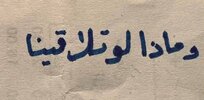 وماذا لو تلاقينا